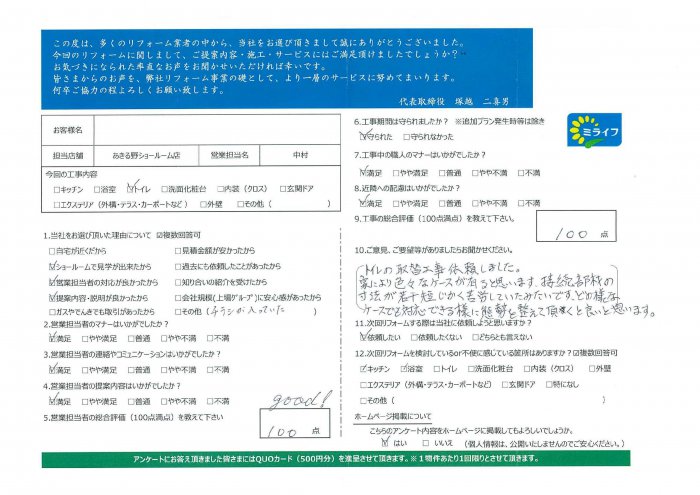 この度は、多くのリフォーム業者の中から、当社をお選び頂きまして誠にありがとうございました。
今回のリフォームに関しまして、ご提案内容・施工・サービスにはご満足頂けましたでしょうか？
お気づきになられた率直なお声をお聞かせいただければ幸いです。
皆さまからのお声を、弊社リフォーム事業の礎として、より一層のサービスに努めてまいります。
何卒ご協力の程よろしくお願い致します。
代表取締役 塚越 二喜男
お客様名
担当店舗 あきる野ショールーム店 営業担当名 中村
今回の工事内容
□キッチン □浴室 ☑トイレ □洗面化粧台 □内装（クロス） □玄関ドア
□エクステリア（外構・テラス・カーポートなど） □外壁 □その他（ ）
1.当社をお選び頂いた理由について ☑複数回答可
□自宅が近くだから □見積金額が安かったから
☑ショールームで見学が出来たから □過去にも依頼したことがあったから
☑営業担当者の対応が良かったから □知り合いの紹介を受けたから
☑提案内容・説明が良かったから □会社規模（上場グループ）に安心感があったから
□ガスやでんきでも取引があったから □その他（チラシが入っていた）
2.営業担当者のマナーはいかがでしたか？
☑満足 □やや満足 □普通 □やや不満 □不満
3.営業担当者の連絡やコミュニケーションはいかがでしたか？
☑満足 □やや満足 □普通 □やや不満 □不満
4.営業担当者の提案内容はいかがでしたか？
☑満足 □やや満足 □普通 □やや不満 □不満
good!
5.営業担当者の総合評価（100点満点）を教えて下さい
100 点
6.工事期間は守られましたか？ ※追加プラン発生時等は除き
☑守られた □守られなかった
ミライフ
7.工事中の職人のマナーはいかがでしたか？
☑満足 □やや満足 □普通 □やや不満 □不満
8.近隣への配慮はいかがでしたか？
☑満足 □やや満足 □普通 □やや不満 □不満
9.工事の総合評価（100点満点）を教えて下さい。
100 点
10.ご意見、ご要望等がありましたらお聞かせください。
トイレの取替工事依頼しました。
家により色々なケースが有ると思います、持続部材の
寸法が若干短じかく苦労していたみたいです。どの様な
ケースでも対応できる様に態勢を整えて頂くと良いと思います。
11.次回リフォームする際は当社に依頼しようと思いますか？
☑依頼したい □依頼したくない □どちらとも言えない
12.次回リフォームを検討しているor不便に感じている箇所はありますか？☑複数回答可
☑キッチン ☑浴室 □トイレ □洗面化粧台 □内装（クロス） □外壁
□エクステリア（外構・テラス・カーポートなど） □玄関ドア □特になし
□その他（ ）
ホームページ掲載について
こちらのアンケート内容をホームページに掲載してもよろしいでしょうか。
☑はい □いいえ （個人情報は、公開いたしませんのでご安心ください。）
アンケートにお答え頂きました皆さまにはQUOカード（500円分）を進呈させて頂きます。※１物件あたり１回限りとさせて頂きます。